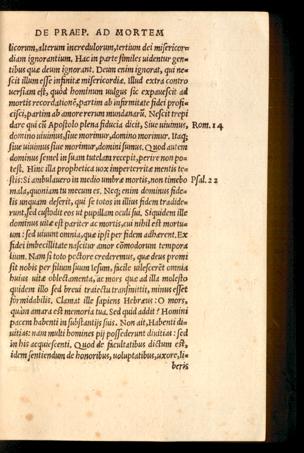 DE PRAEP. AD MORTEM
licorum, alterum incredulorum, tertium dei misericor-
diam ignorantium. Hac in parte similes uidentur gen-
tibus quæ deum ignorant. Deum enim ignorat, qui ne-
scit illum esse infinitæ misericordiæ. Illud extra contro
uersiam est, quòd hominum uulgus sic expauescit ad
mortis recordationē, partim ab infirmitate fidei profi-
cisci, partim ab amore rerum mundanarū. Nescit trepi
dare qui cū Apostolo plena fiducia dicit, Siue uiuimus, Rom. 14
domino uiuimus, siue morimur, domino morimur. Itaq;
siue uiuimus siue morimur, domini sumus. Quod autem
dominus semel in suam tutelam recepit, perire non po-
test. Hinc illa prophetica uox imperterritæ mentis te-
stis: Si ambulauero in medio umbræ mortis, non timebo Psal. 22
mala, quoniam tu mecum es. Neq; enim dominus fide-
lis unquam deserit, qui se totos in illius fidem tradide-
runt, sed custodit eos ut pupillam oculi sui. Siquidem ille
dominus uitæ est pariter ac mortis, cui nihil est mortu-
um: sed uiuunt omnia, quæ ipsi per fidem adhærent. Ex
fidei imbecillitate nascitur amor cōmodorum tempora
lium. Nam si toto pectore crederemus, quæ deus promi
sit nobis per filium suum Iesum, facile uilesceret omnia
huius uitæ oblectamenta, ac mors quæ ad illa molesto
quidem illo sed breui traiectu transmittit, minus esset
formidabilis. Clamat ille sapiens Hebræus: O mors,
quàm amara est memoria tua. Sed quid addit? Homini
pacem habenti in substantijs suis. Non ait, Habenti di-
uitias: nam multi homines pij possederunt diuitias: sed
in his acquiescenti. Quod de facultatibus dictum est,
idem sentiendum de honoribus, uoluptatibus, uxore, li-
beris